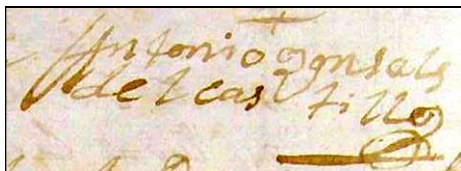 Antonio gonsales
del castillo